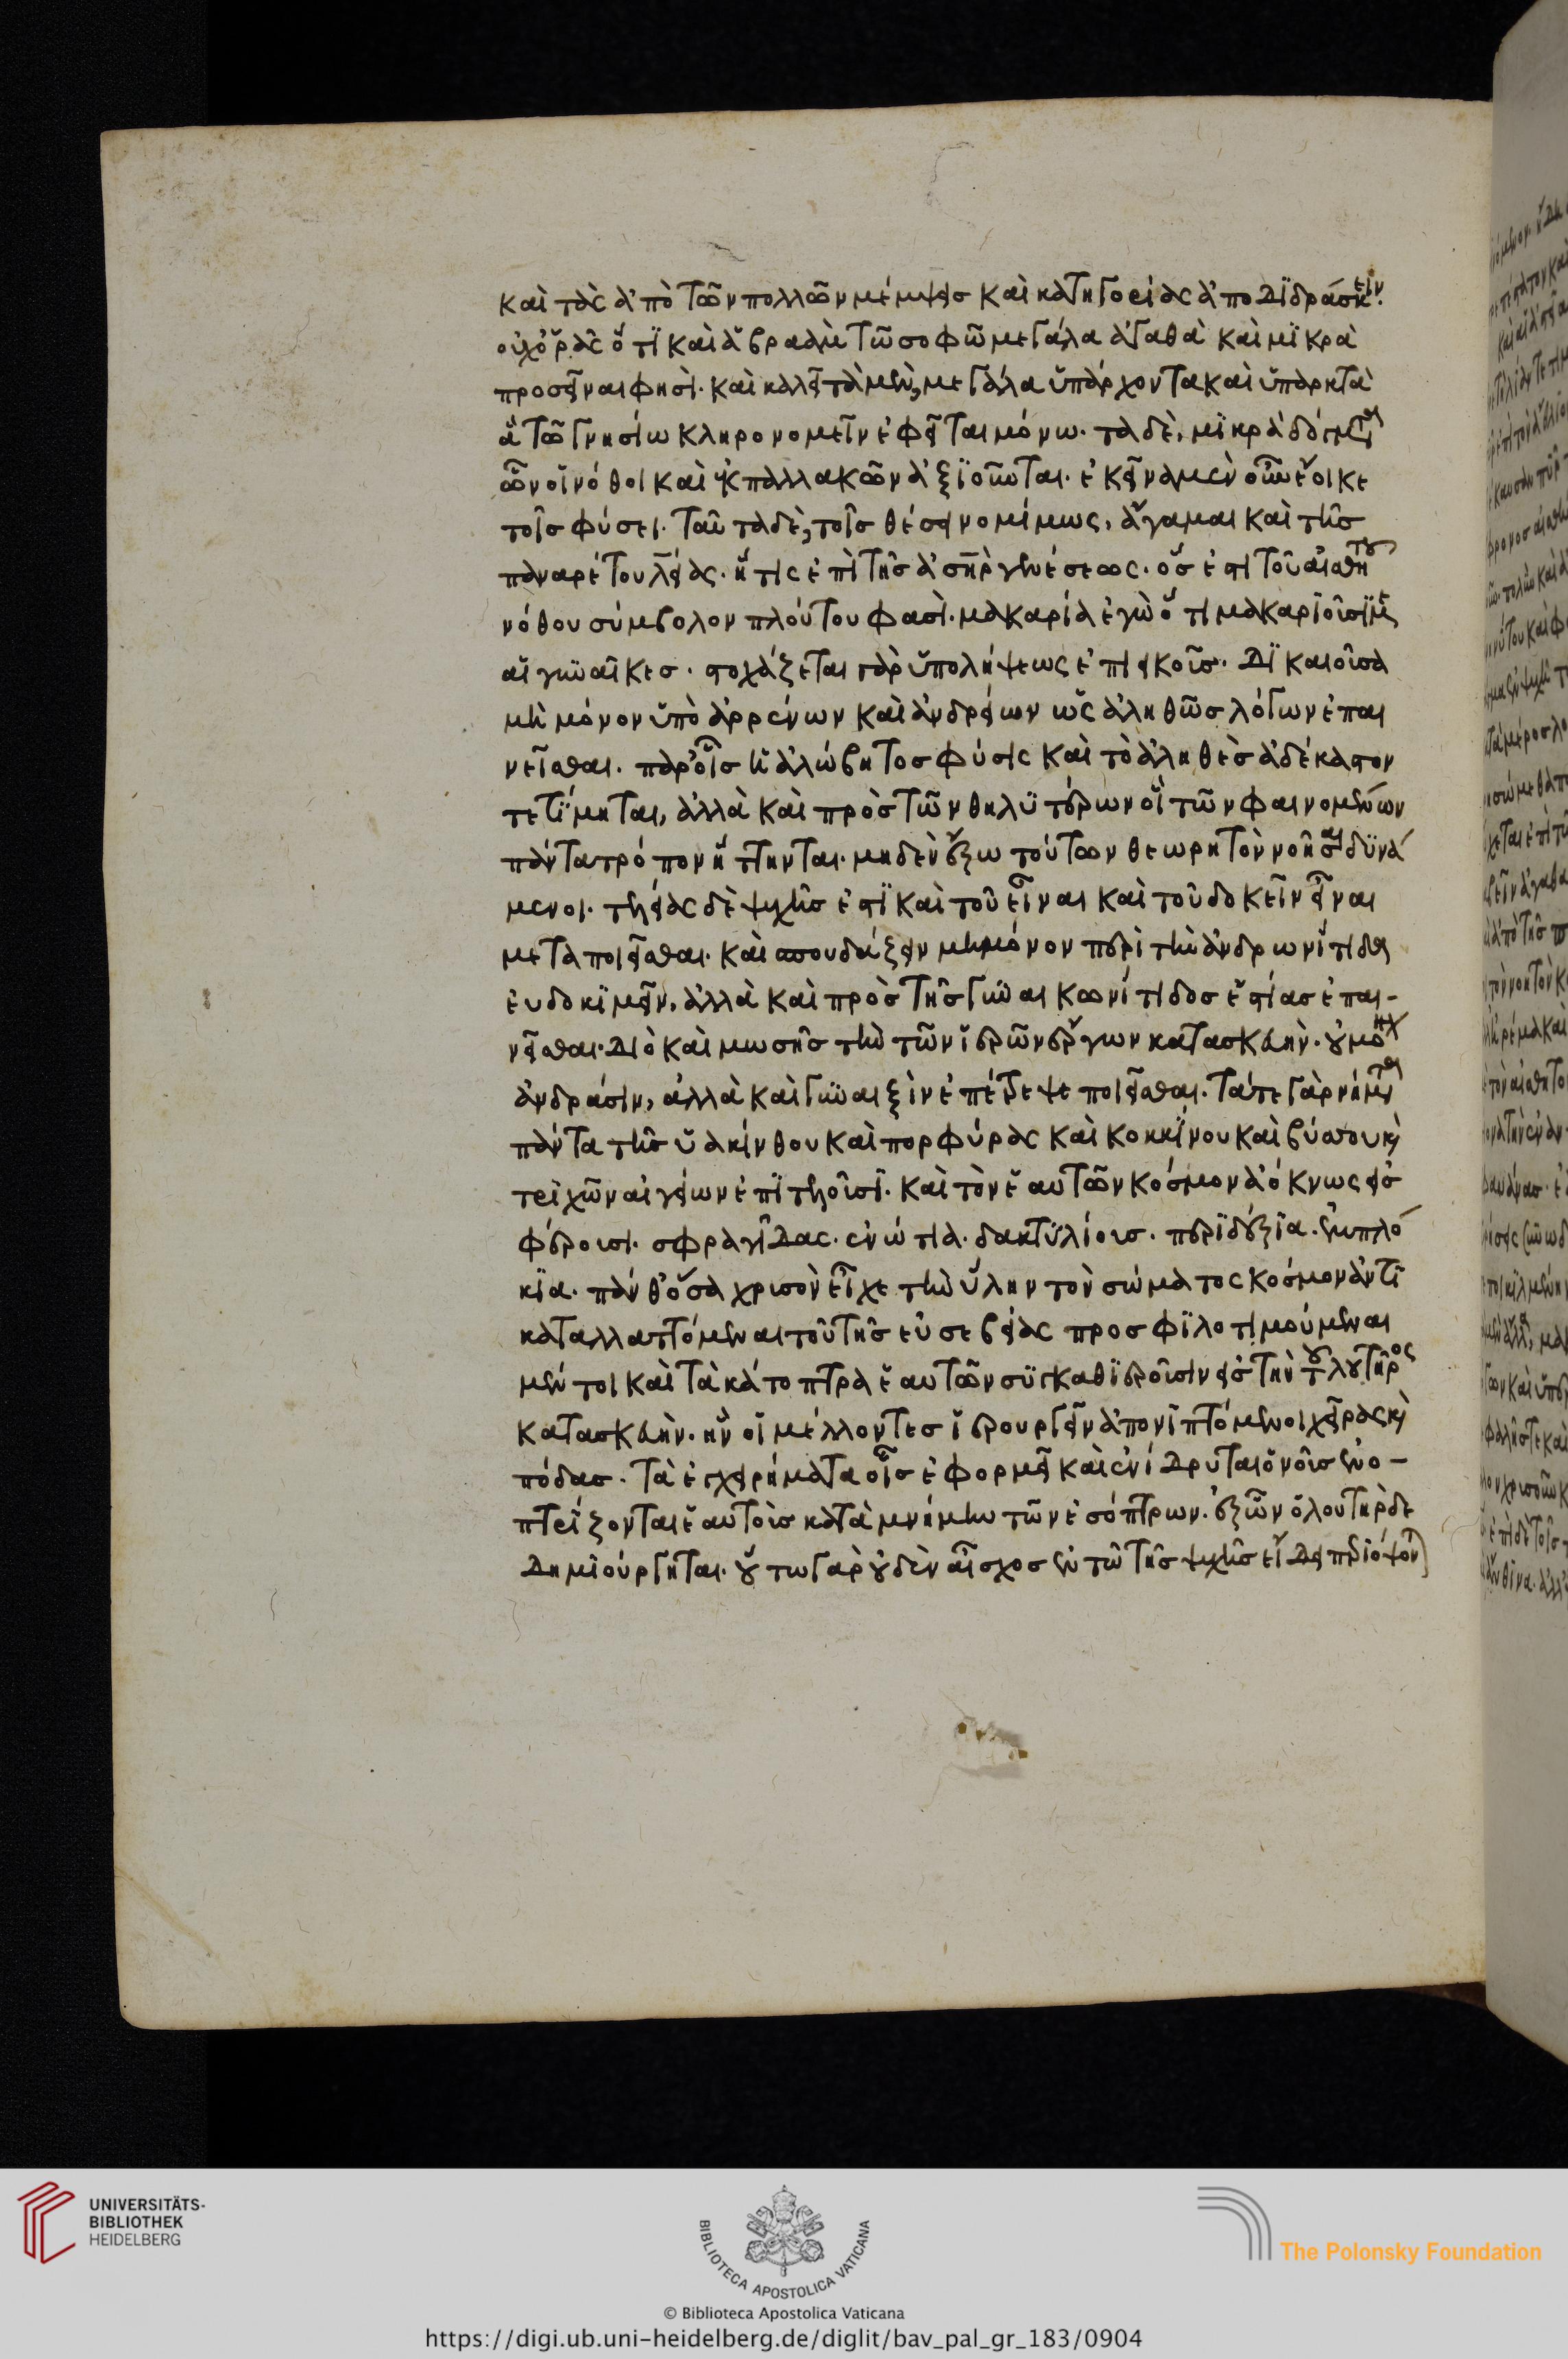 καὶ τὰς ἀπὸ τῶν πολλῶν μέμψεισ καὶ κατηγορίας ἀποδιδράσκειν.
οὐχ ὁρᾶς ὅτι καὶ ἀβραὰμ τῶ σοφῶ μεγάλα ἀγαθὰ καὶ μικρὰ
προσεῖναι φησὶ. καὶ καλεῖ τὰ μὲν, μεγάλα ὑπάρχοντα καὶ ὑπαρκτὰ
ἃ τῶ γνησίω κληρονομεῖν ἐφεῖται μόνω. τὰ δὲ, μικρὰ δόματα
ὧν οἱ νόθοι καὶ ἐκ παλλακῶν ἀξιοῦνται. ἐκεῖνα μὲν οὖν ἔοικε
τοῖσ φύσει. ταῦτα δὲ, τοῖσ θέσει νομίμως. ἄγαμαι καὶ τῆσ
παναρέτου λείας. ἥτις ἐπὶ τῆσ ἀσὴρ γενέσεως. ὅσ ἐστι τοῦ αἰσθητοῦ
νόθου σύμβολον πλούτου φασὶ. μακαρία ἐγὼ ὅτι μακαριοῦσι με
αἱ γυναῖκεσ. στοχάζεται γὰρ ὑπολήψεως ἐπιεικοῦσ. δικαιοῦσα
μὴ μόνον ὑπὸ ἀρρένων καὶ ἀνδρείων ὡς ἀληθῶσ λόγων ἐπαι
νεῖσθαι. παρ' οἷσ ἡ ἀλώβητοσ φύσις καὶ τὸ ἀληθὲσ ἀδέκαστον
τετίμηται, ἀλλὰ καὶ πρὸσ τῶν θηλυτέρων οἳ τῶν φαινομένων
πάντα τρόπον ἥττηνται. μηδὲν ἔξω τούτων θεωρητὸν νοῆσαι δυνά
μενοι. τελείας δὲ ψυχῆσ ἐστὶ καὶ τοῦ εἶναι καὶ τοῦ δοκεῖν εἶναι
μεταποιεῖσθαι. καὶ σπουδάζειν μὴ μόνον περὶ τὴν ἀνδρωνίτιδα
εὐδοκιμεῖν, ἀλλὰ καὶ πρὸσ τῆσ γυναικωνίτιδοσ ἑστίασ ἐπαι-
νεῖσθαι. διὸ καὶ μωσῆσ τὴν τῶν ἱερῶν ἔργων κατασκευὴν. οὐ μόνον
ἀνδράσιν, ἀλλὰ καὶ γυναιξὶν ἐπέτρεψε ποιεῖσθαι. τάτε γὰρ νήματα
πάντα τῆσ ὑακίνθου καὶ πορφύρας καὶ κοκκίνου καὶ βύσσου κὶ
τριχῶν αἰγείων ἐπιτελοῦσι. καὶ τὸν ἑαυτῶν κόσμον ἀόκνως εἰσ
φέρουσι. σφραγίδας. ἐνώτια. δακτυλίουσ. περιδέξια. ἐμπλό
κια. πάνθ' ὅσα χρυσὸν εἶχε τὴν ὕλην τὸν σώματος κόσμον ἀντι
καταλλαττόμεναι τοῦ τῆσ εὐσεβείας προσφιλοτιμούμεναι
μέντοι καὶ τὰ κάτοπτρα ἑαυτῶν συγκαθιεροῦσιν εἰσ τὴν τοῦ λουτῆρος
κατασκευὴν. ἣν οἱ μέλλοντεσ ἱερουργεῖν ἀπονιπτόμενοι χεῖρας κὶ
πόδασ. τὰ ἐγχειρήματα οἷσ ἐφορμεῖ καὶ ἐνίδρυται ὁ νοῦσ ἐνο-
πτρίζονται ἑαυτοὺσ κατὰ μνήμην τῶν ἐσόπτρων. ἐξ ὧν ὁ λουτὴρ δε
δημιούργηται. οὕτω γὰρ οὐδὲν αἶσχοσ ἐν τῶ τῆσ ψυχῆσ εἴδει περιόψον
UNIVERSITÄTS-
BIBLIOTHEK
HEIDELBERG
BIBLIOTECA APOSTOLICA VATICANA
The Polonsky Foundation
© Biblioteca Apostolica Vaticana
https://digi.ub.uni-heidelberg.de/diglit/bav_pal_gr_183/0904